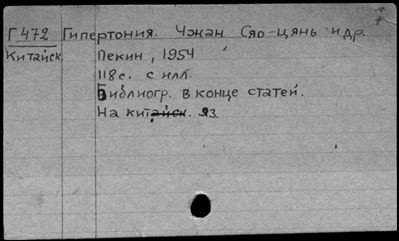 Г472 Гипертония. Чжан Сяо-цянь и др.
Китайск. Пекин, 1954
118 с. с илл.
Библиогр. в конце статей.
На китайск. яз.